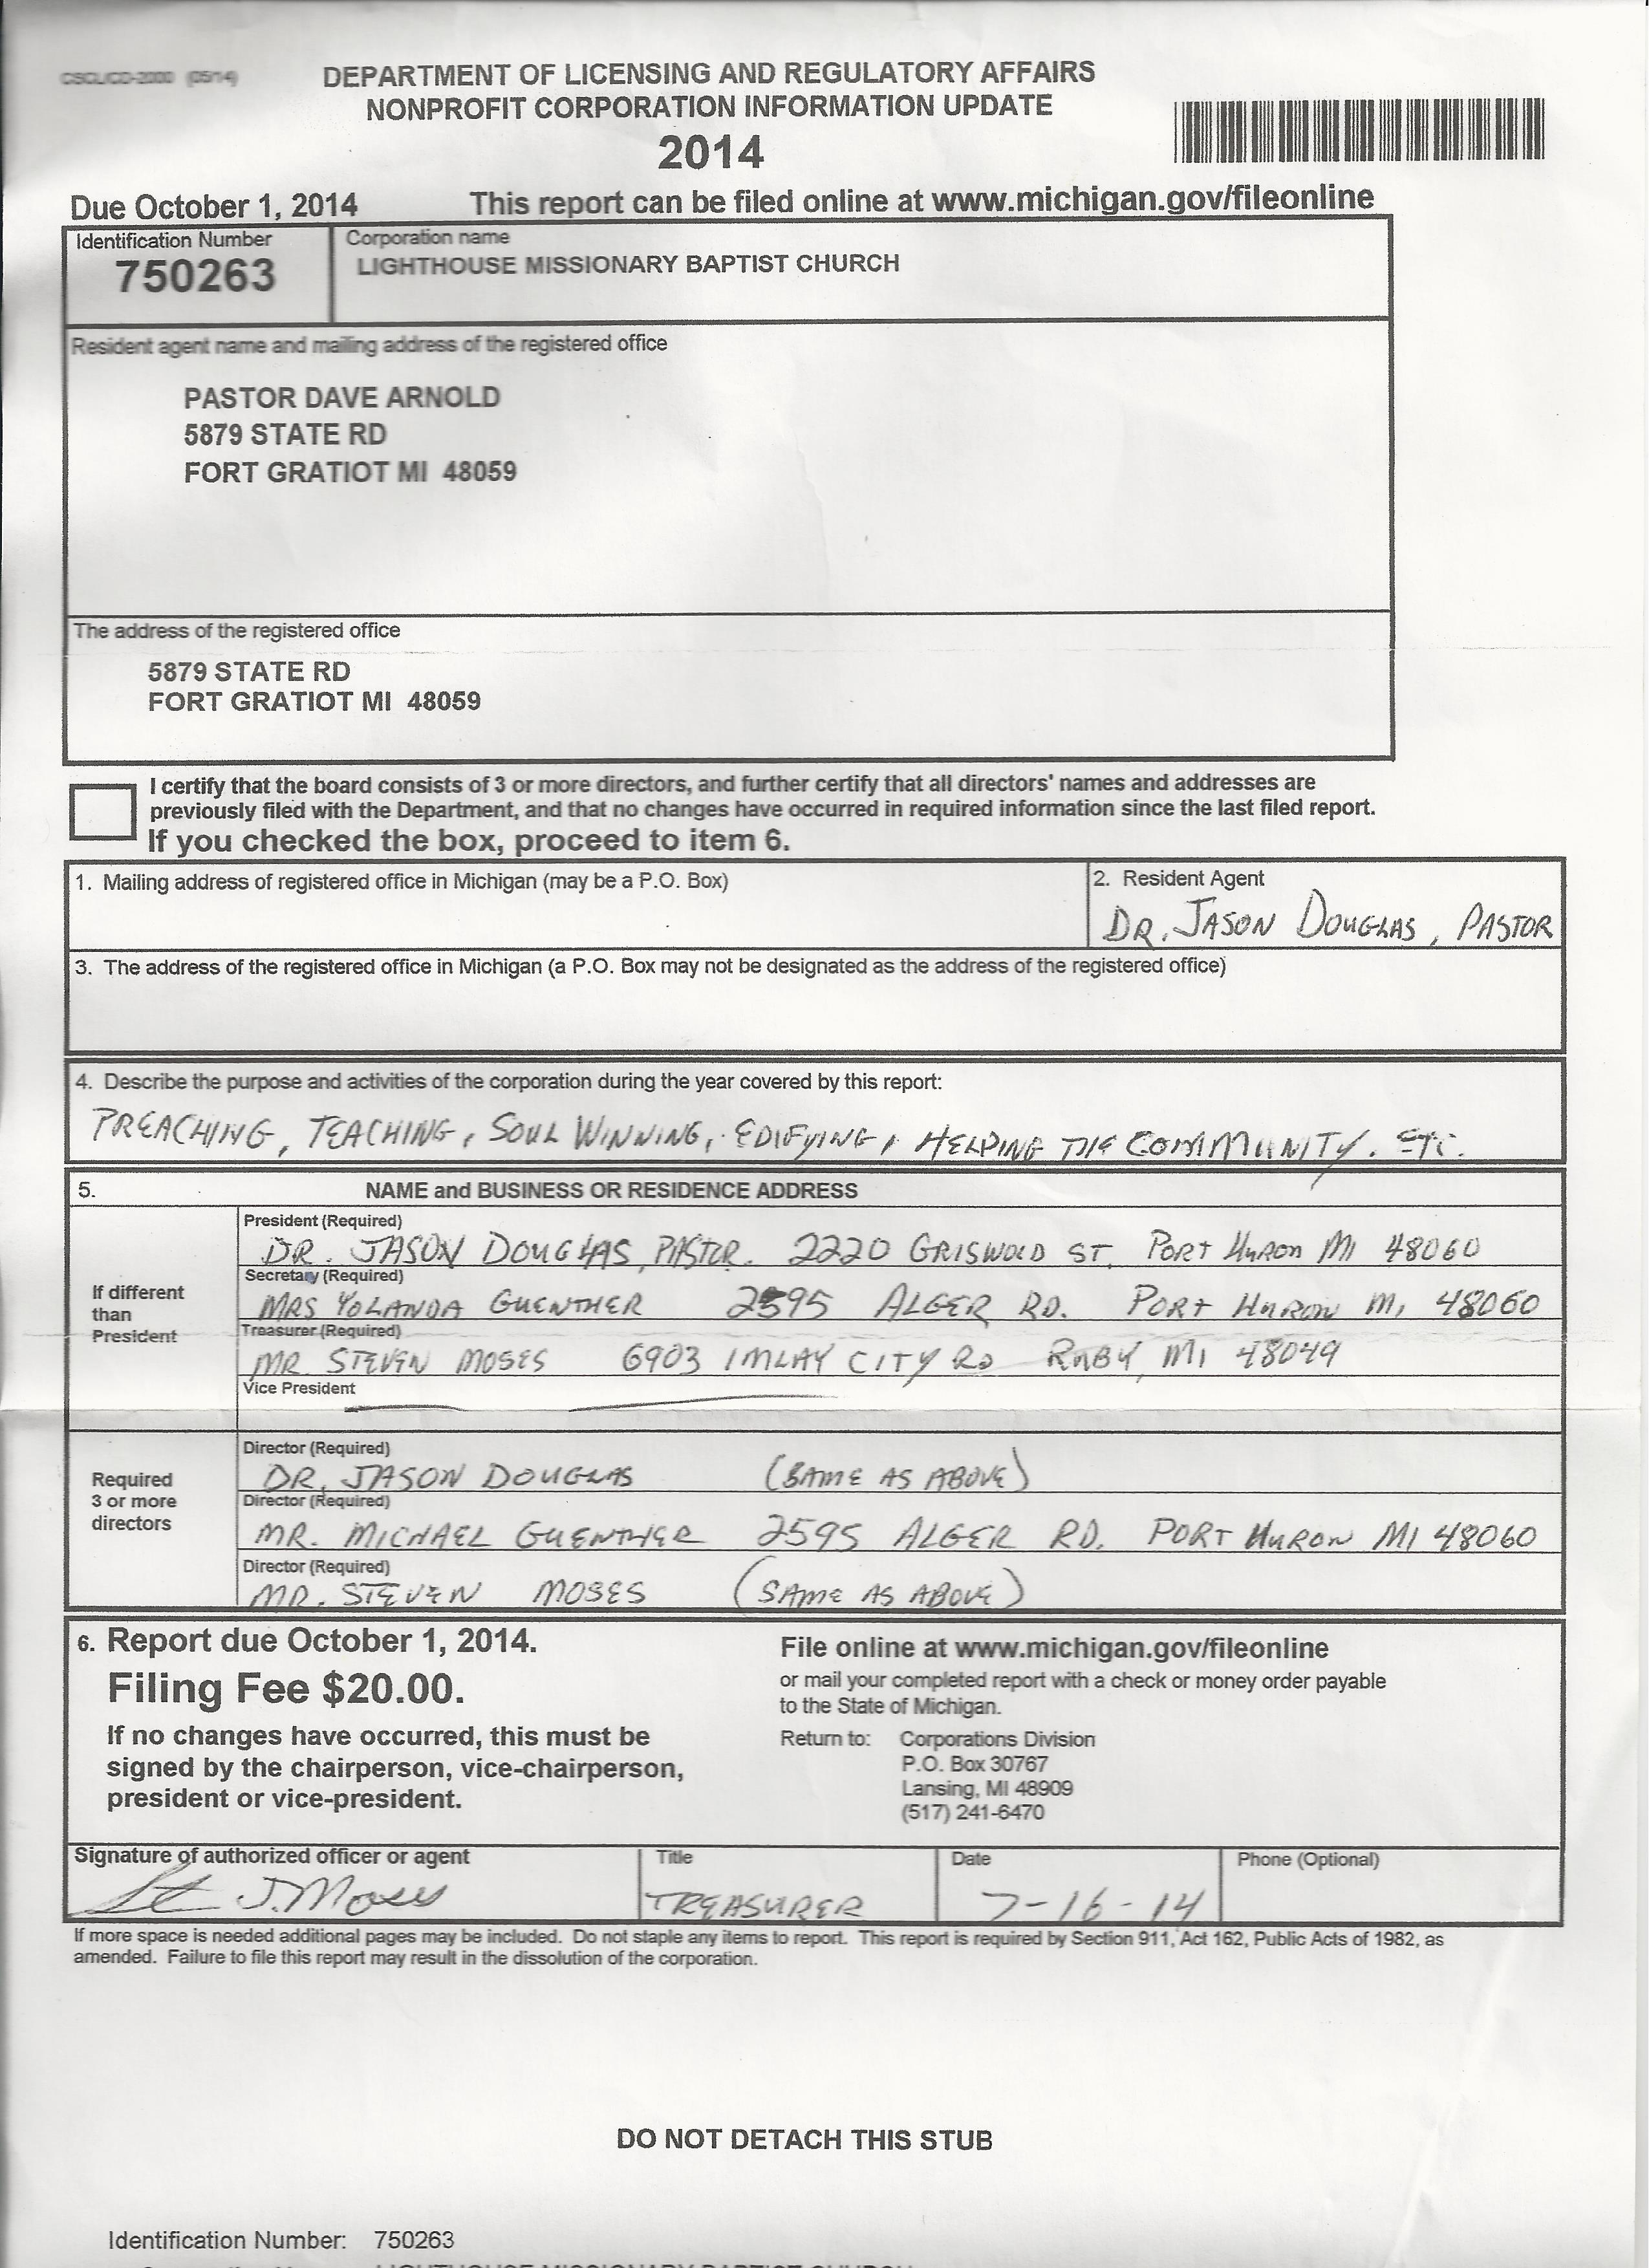 CSCL/CD-2000 (05/14)
DEPARTMENT OF LICENSING AND REGULATORY AFFAIRS
NONPROFIT CORPORATION INFORMATION UPDATE
2014
Due October 1, 2014 This report can be filed online at www.michigan.gov/fileonline
Identification Number
750263
Corporation name
LIGHTHOUSE MISSIONARY BAPTIST CHURCH
Resident agent name and mailing address of the registered office
PASTOR DAVE ARNOLD
5879 STATE RD
FORT GRATIOT MI 48059
The address of the registered office
5879 STATE RD
FORT GRATIOT MI 48059
I certify that the board consists of 3 or more directors, and further certify that all directors' names and addresses are
previously filed with the Department, and that no changes have occurred in required information since the last filed report.
If you checked the box, proceed to item 6.
1. Mailing address of registered office in Michigan (may be a P.O. Box)
2. Resident Agent
DR. JASON DOUGLAS, PASTOR
3. The address of the registered office in Michigan (a P.O. Box may not be designated as the address of the registered office)
4. Describe the purpose and activities of the corporation during the year covered by this report:
PREACHING, TEACHING, SOUL WINNING, EDIFYING, HELPING THE COMMUNITY. ETC.
5. NAME and BUSINESS OR RESIDENCE ADDRESS
If different
than
President
President (Required)
DR. JASON DOUGLAS, PASTOR. 2220 GRISWOLD ST. PORT HURON MI 48060
Secretary (Required)
MRS YOLANDA GUENTHER 2595 ALGER RD. PORT HURON MI 48060
Treasurer (Required)
MR. STEVEN MOSES 6903 IMLAY CITY RD RUBY, MI 48049
Vice President
Required
3 or more
directors
Director (Required)
DR. JASON DOUGLAS (SAME AS ABOVE)
Director (Required)
MR. MICHAEL GUENTHER 2595 ALGER RD. PORT HURON MI 48060
Director (Required)
MR. STEVEN MOSES (SAME AS ABOVE)
6. Report due October 1, 2014.
Filing Fee $20.00.
If no changes have occurred, this must be
signed by the chairperson, vice-chairperson,
president or vice-president.
File online at www.michigan.gov/fileonline
or mail your completed report with a check or money order payable
to the State of Michigan.
Return to: Corporations Division
P.O. Box 30767
Lansing, MI 48909
(517) 241-6470
Signature of authorized officer or agent
Title
TREASURER
Date
7-16-14
Phone (Optional)
If more space is needed additional pages may be included. Do not staple any items to report. This report is required by Section 911, Act 162, Public Acts of 1982, as
amended. Failure to file this report may result in the dissolution of the corporation.
DO NOT DETACH THIS STUB
Identification Number: 750263